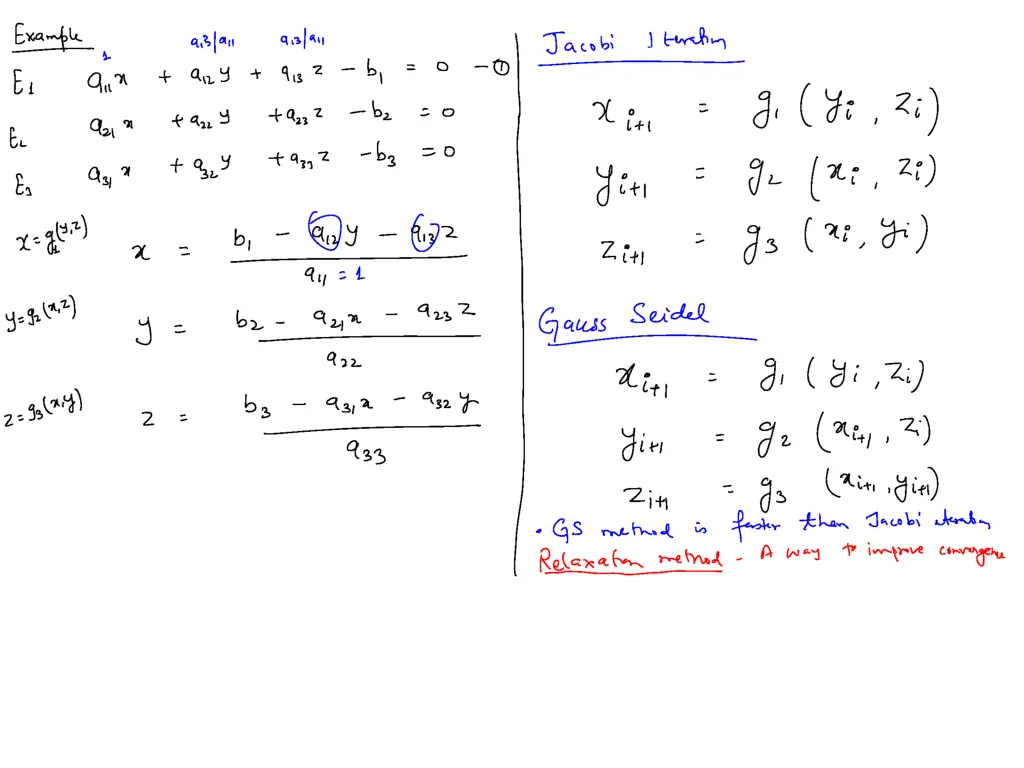 Example
1 a13/a11 a13/a11
E1 a11x + a12y + a13z - b1 = 0 - ①
E2 a21x + a22y + a23z - b2 = 0
E3 a31x + a32y + a33z - b3 = 0
x = g1(y,z) x = b1 - a12y - a13z
a11 = 1
y = g2(x,z) y = b2 - a21x - a23z
a22
z = g3(x,y) z = b3 - a31x - a32y
a33
Jacobi Iteration
xi+1 = g1 (yi, zi)
yi+1 = g2 (xi, zi)
zi+1 = g3 (xi, yi)
Gauss Seidel
xi+1 = g1 (yi, zi)
yi+1 = g2 (xi+1, zi)
zi+1 = g3 (xi+1, yi+1)
• GS method is faster than Jacobi iteration
Relaxation method - A way to improve convergence